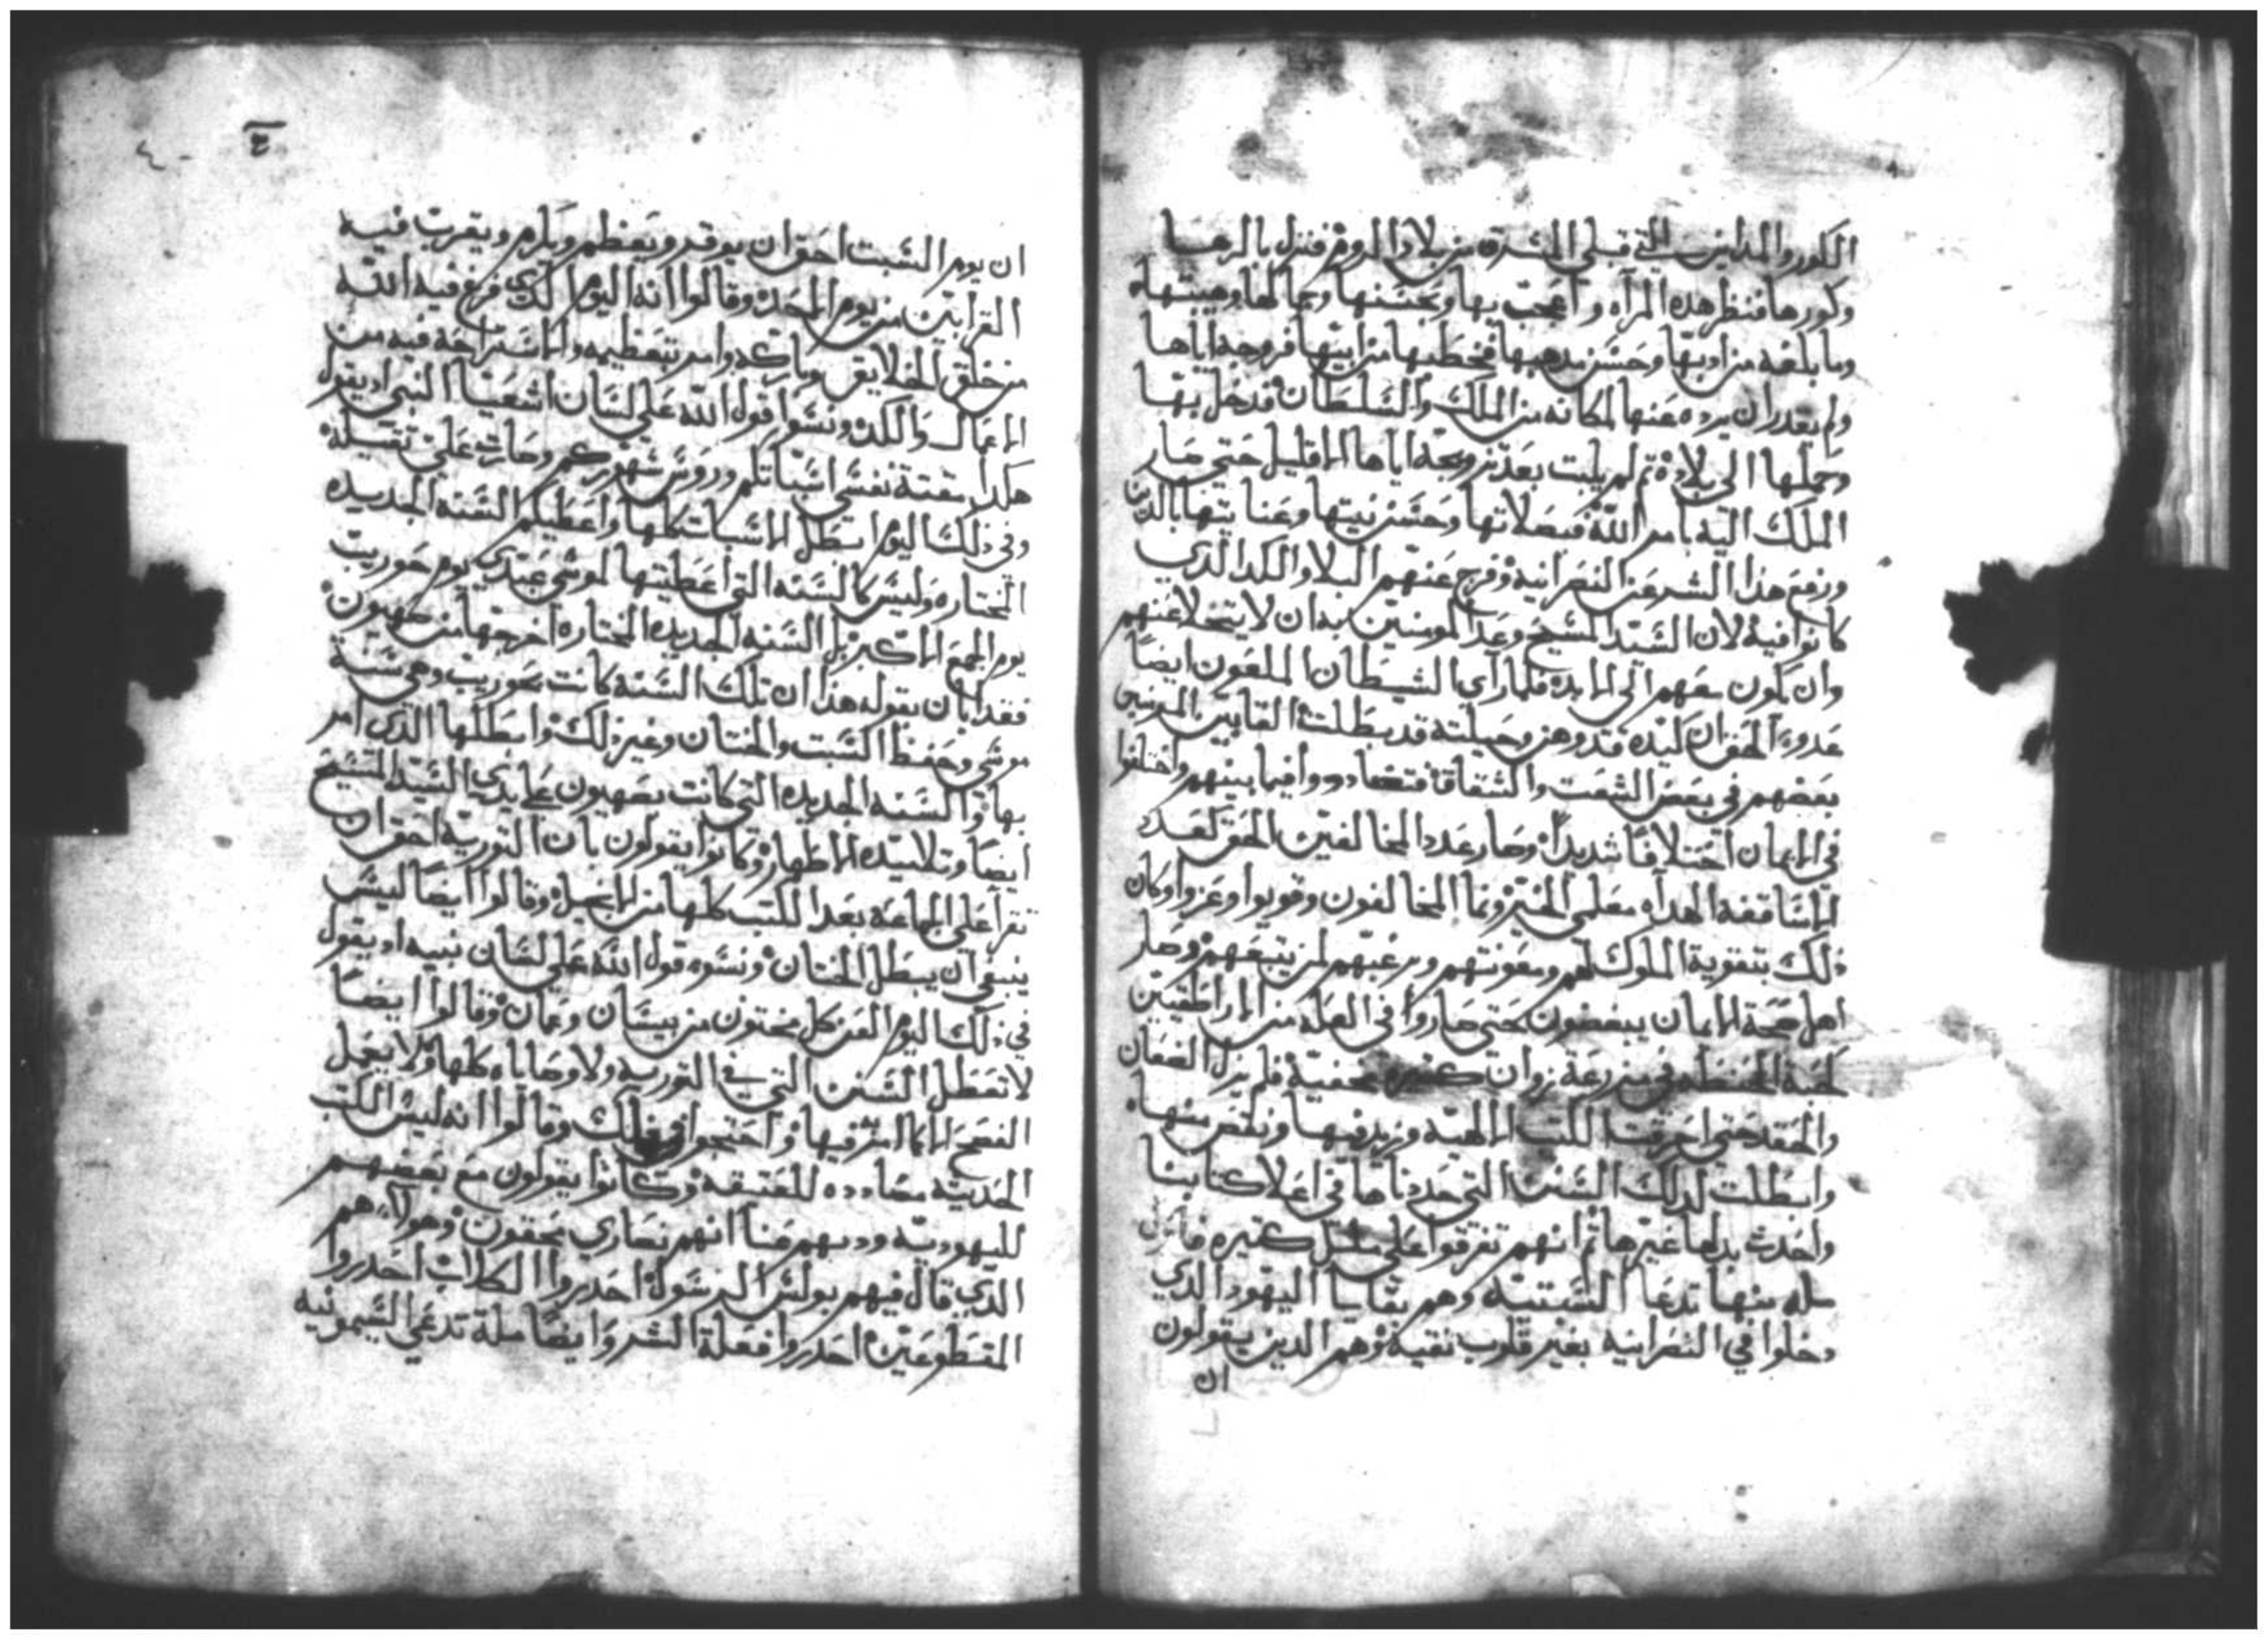 الكور والمداين التي قبلي المشرق من بلاد الروم فنزل بالرها
وكورها فنظر هده المرآه واعجب بها وبحسنها وجمالها وهيبتها
وما بلغه من ادبها وحسن مدهبها فخطبها من ابيها فزوجه اياها
ولم يقدر ان يرده عنها لمكانه من الملك والسلطان فدخل بها
وحملها الي بلاده تم لم يلبت بعد تزويجه اياها الا قليل حتي صار
الملك اليه بامر الله فبصلاتها وحسن نيتها وعنايتها بالدين
ورفع هدا الشر عن النصرانيه وفرج عنهم البلا والكد الدي
كانوا فيه لان السيد المسيح وعد المومنين به ان لا يتخلا عنهم
وان يكون معهم الي الابد فلما راي الشيطان الملعون ايضا
عدو الحق ان كيده قد وهن وحيلته قد بطلت القا بين المومنين
بعضهم في بعض الشغت والشقاق فتضاددوا فيما بينهم واختلفوا
في الايمان اختلافا شديدا وصار عدد المخالفين الحق كعدد
الاساقفه الهداه معلمي الخير ونما المخالفون وقويوا وعزوا وكان
دلك بتقوية الملوك لهم ومعونتهم ورغبتهم لمن يتبعهم وصار
اهل صحة الايمان يبغضون حتي صاروا في العله من الاراطقيين
كحبة الحنطه في مزرعة زوان كتيره مخفية فلم يزل الضغان
والحقد حتي احرقت الكتب الالهيه وزيد فيها ونقص منها
وابطلت لدلك السنن التي حددناها في اعلا كتابنا
واحدت بدلها غيرها تم انهم تفرقوا علي ملل كتيره
مله منها تدعا السبتيه وهم بقايا اليهود الدي
دخلوا في النصرانيه بغير قلوب نقيه وهم الدين يقولون
ان
ان يوم السبت احق ان يوقر ويعظم ويكرم ويقرب فيه
القرابين من يوم الاحد وقالوا انه اليوم الدي فرغ فيه الله
من خلق الخلايق وتاكد وامر بتعظيمه والاستراحة فيه من
الاعمال والكد ونسوا قول الله علي لسان اشعيا النبي اد يقول
هكدا مقتة نفسي اسباتكم وروس شهوركم وصارت علي تقيلة
وفي دلك اليوم ابطل الاسبات كلها واعطيكم السنه الجديده
المختاره وليس كالسنه التي اعطيتها لموسي عبدي يوم حوريب
يوم الجمع الاكبر بل السنه الجديده المختاره اخرجها من صهيون
فقد ابان بقوله هدا ان تلك السنه كانت بحوريب وهي سنة
موسي وحفظ السبت والختان وغير دلك وابطلها الدي امر
بها والسنه الجديده التي كانت بصهيون علي يدي السيد المسيح
ايضا وتلاميده الاطهار وكانوا يقولون بان التوريه احق ان
تقرا علي الجماعه بعد الكتب كلها من الانجيل وقالوا ايضا ليس
ينبغي ان يبطل الختان ونسوه قول الله علي لسان نبيه اد يقول
في دلك اليوم العن كل مختون من بيسان وعمان وقالوا ايضا
لا تعطل السنن التي في التوريه ولا وصاياه كلها ولا يعمل
الفصح الا كما امر فيها واحتجوا في دلك وقالوا انه ليس الكتب
الحديته مضادده للعتيقه وكانوا يقولون مع بعضهم
لليهوديه ودبهم عنا انهم نصاري بحقون وهولاء هم
الدي قال فيهم بولس الرسول احدروا الكلاب احدروا
المقطوعين احدروا فعلة الشر وايضا ملة تدعي السيمونيه